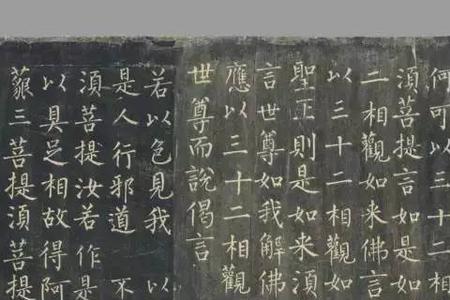 何可以三十二相
須菩提言如是如
二相觀如来佛言
以三十二相觀如
聖王則是如来須
言世尊如我解佛
應以三十二相觀
世尊而說偈言
若以色見我 以
是人行邪道 不
須菩提汝若作是
以具足相故得阿
藐三菩提須菩提